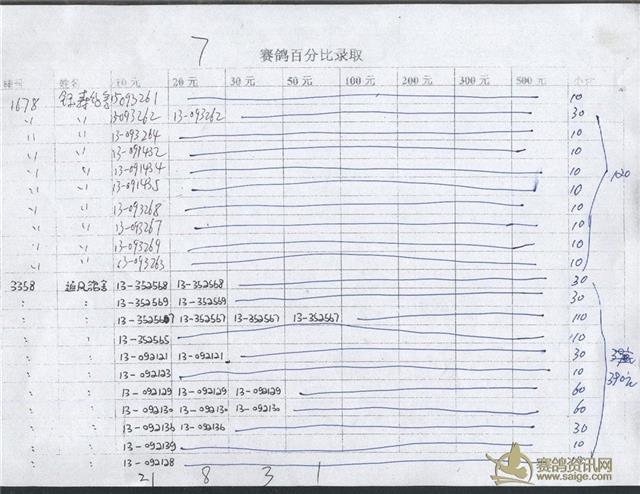 7
赛鸽百分比录取
棚号 姓名 10元 20元 30元 50元 100元 200元 300元 500元 小计
1678 13-093261 10
〃 〃 13-093262 13-093262 30
〃 〃 13-093264 10
〃 〃 13-091432 10
〃 〃 13-091434 10
〃 〃 13-091435 10
〃 〃 13-093268 10
〃 〃 13-093267 10
〃 〃 13-093269 10
〃 〃 13-093263 10
120
3358 追风鸽舍 13-352568 13-352568 30
〃 〃 13-352569 13-352569 30
〃 〃 13-352567 13-352567 13-352567 13-352567 110
〃 〃 13-352565 10
〃 〃 13-092121 13-092121 30
〃 〃 13-092123 10
〃 〃 13-092129 13-092129 13-092129 60
〃 〃 13-092130 13-092130 13-092130 60
〃 〃 13-092136 13-092136 30
〃 〃 13-092139 10
〃 〃 13-092128
390元
21 8 3 1
赛鸽资讯网
www.saige.com